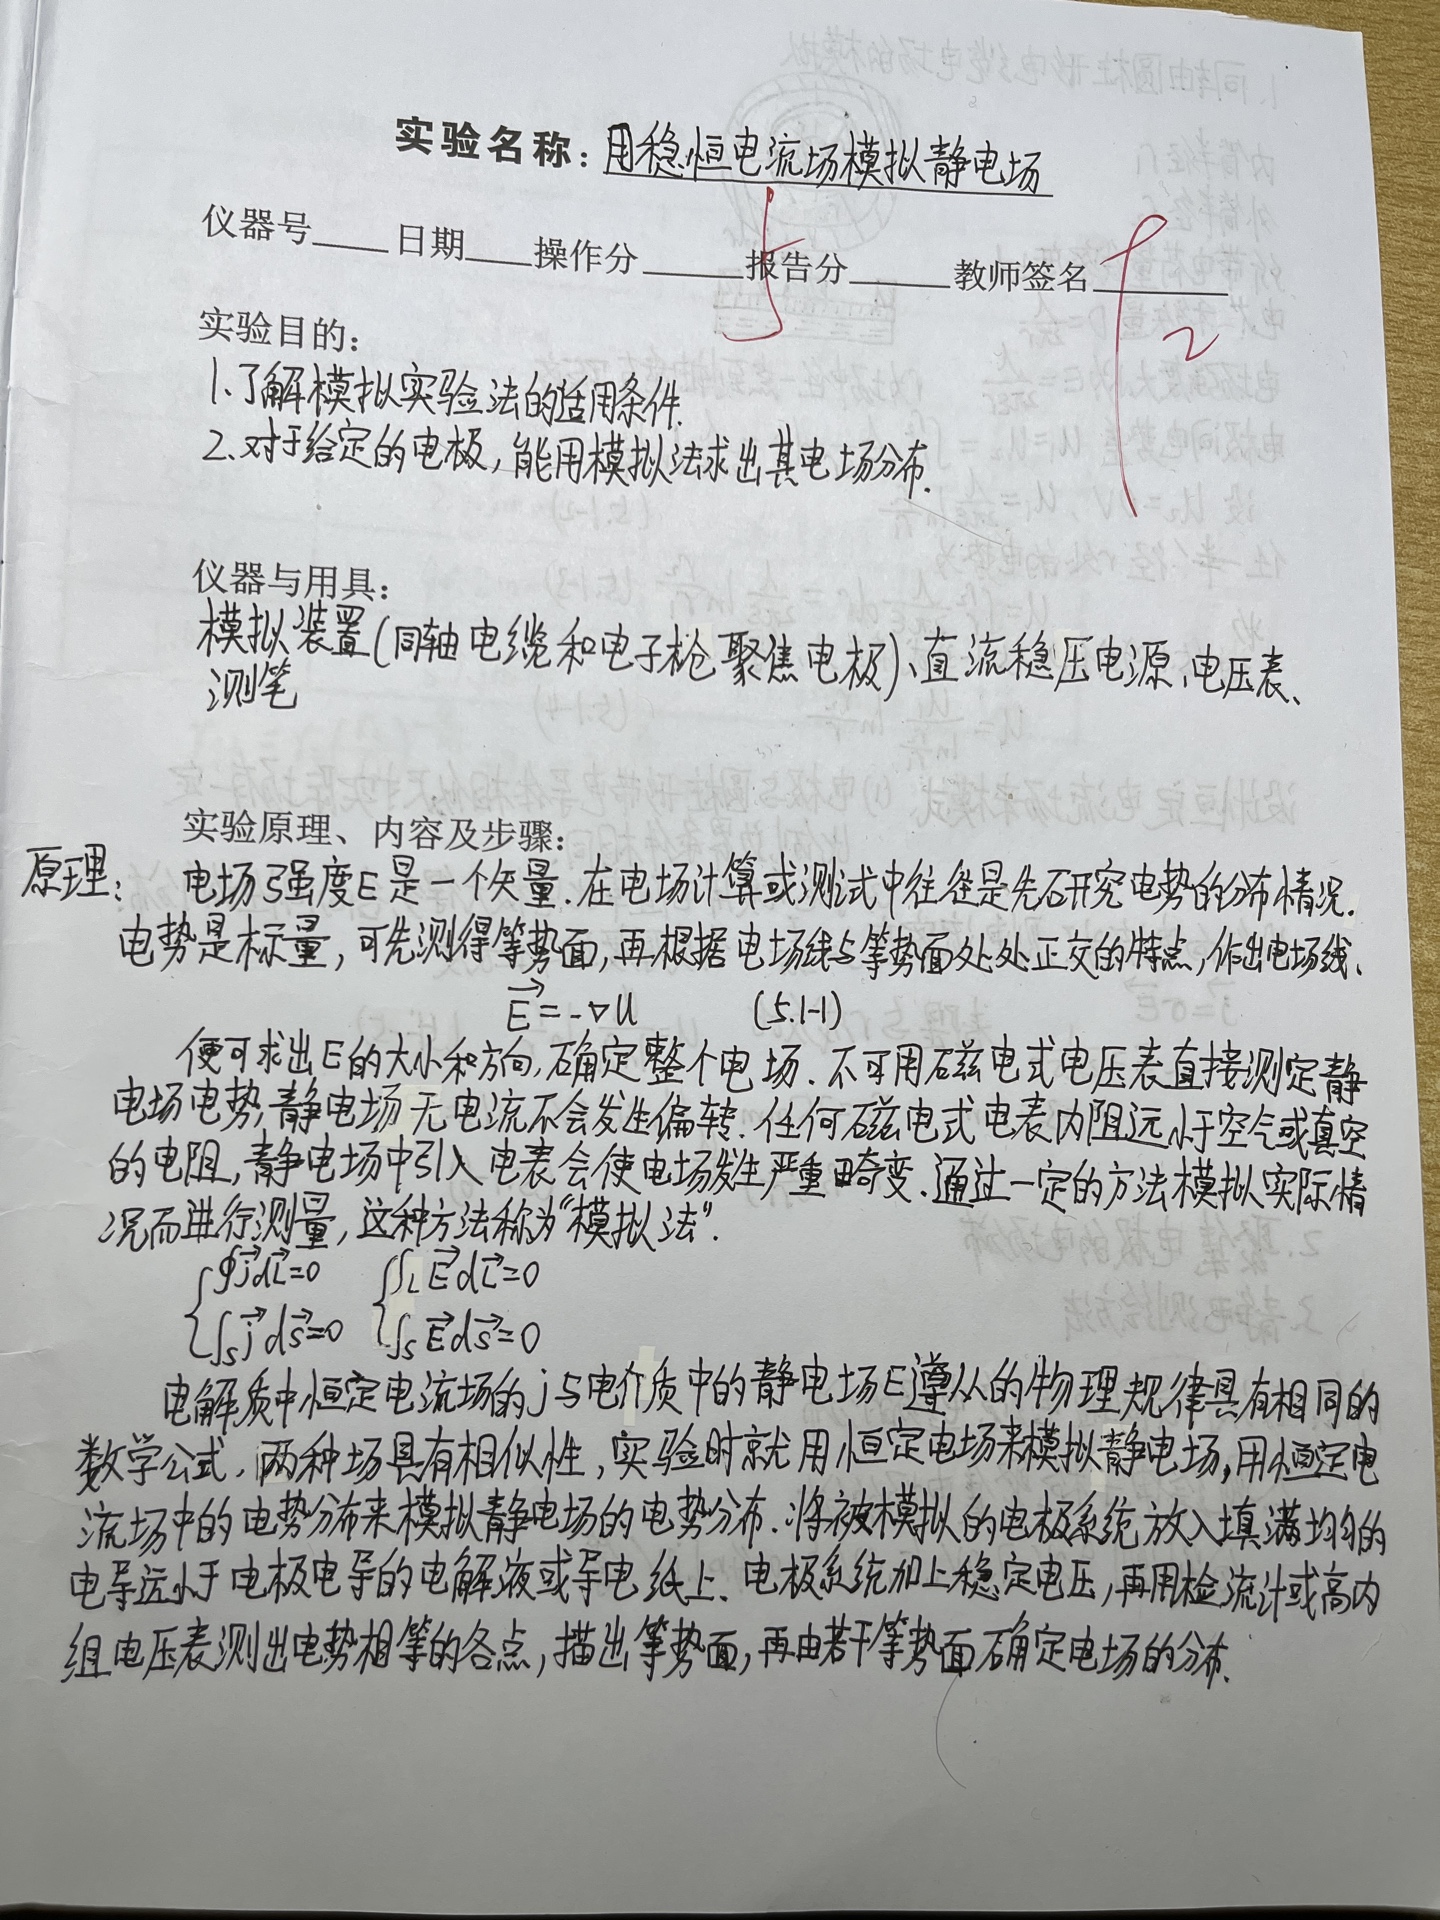 实验名称：用稳恒电流场模拟静电场
仪器号____日期____操作分____报告分____教师签名____
5
实验目的：
1.了解模拟实验法的适用条件.
2.对于给定的电极，能用模拟法求出其电场分布.
仪器与用具：
模拟装置(同轴电缆和电子枪聚焦电极)、直流稳压电源、电压表、
测笔
实验原理、内容及步骤：
原理：电场强度E是一个矢量.在电场计算或测试中往往是先研究电势的分布情况.
电势是标量，可先测得等势面，再根据电场线与等势面处处正交的特点，作出电场线、
$\vec{E}=-\nabla U$ (5.1-1)
便可求出E的大小和方向，确定整个电场.不可用磁电式电压表直接测定静
电场电势，静电场无电流不会发生偏转.任何磁电式电表内阻远小于空气或真空
的电阻，静电场中引入电表会使电场发生严重畸变.通过一定的方法模拟实际情
况而进行测量，这种方法称为“模拟法”.
{∮$\vec{j}$d$\vec{L}$=0 {∫_L $\vec{E}$d$\vec{L}$=0
{∫_S $\vec{j}$d$\vec{s}$=0 {∫_S $\vec{E}$d$\vec{s}$=0
电解质中恒定电流场的j与电介质中的静电场E遵从的物理规律具有相同的
数学公式，两种场具有相似性，实验时就用恒定电场来模拟静电场，用恒定电
流场中的电势分布来模拟静电场的电势分布.将被模拟的电极系统放入填满均匀的
电导远小于电极电导的电解液或导电纸上、电极系统加上稳定电压，再用检流计或高内
组电压表测出电势相等的各点，描出等势面，再由若干等势面确定电场的分布.